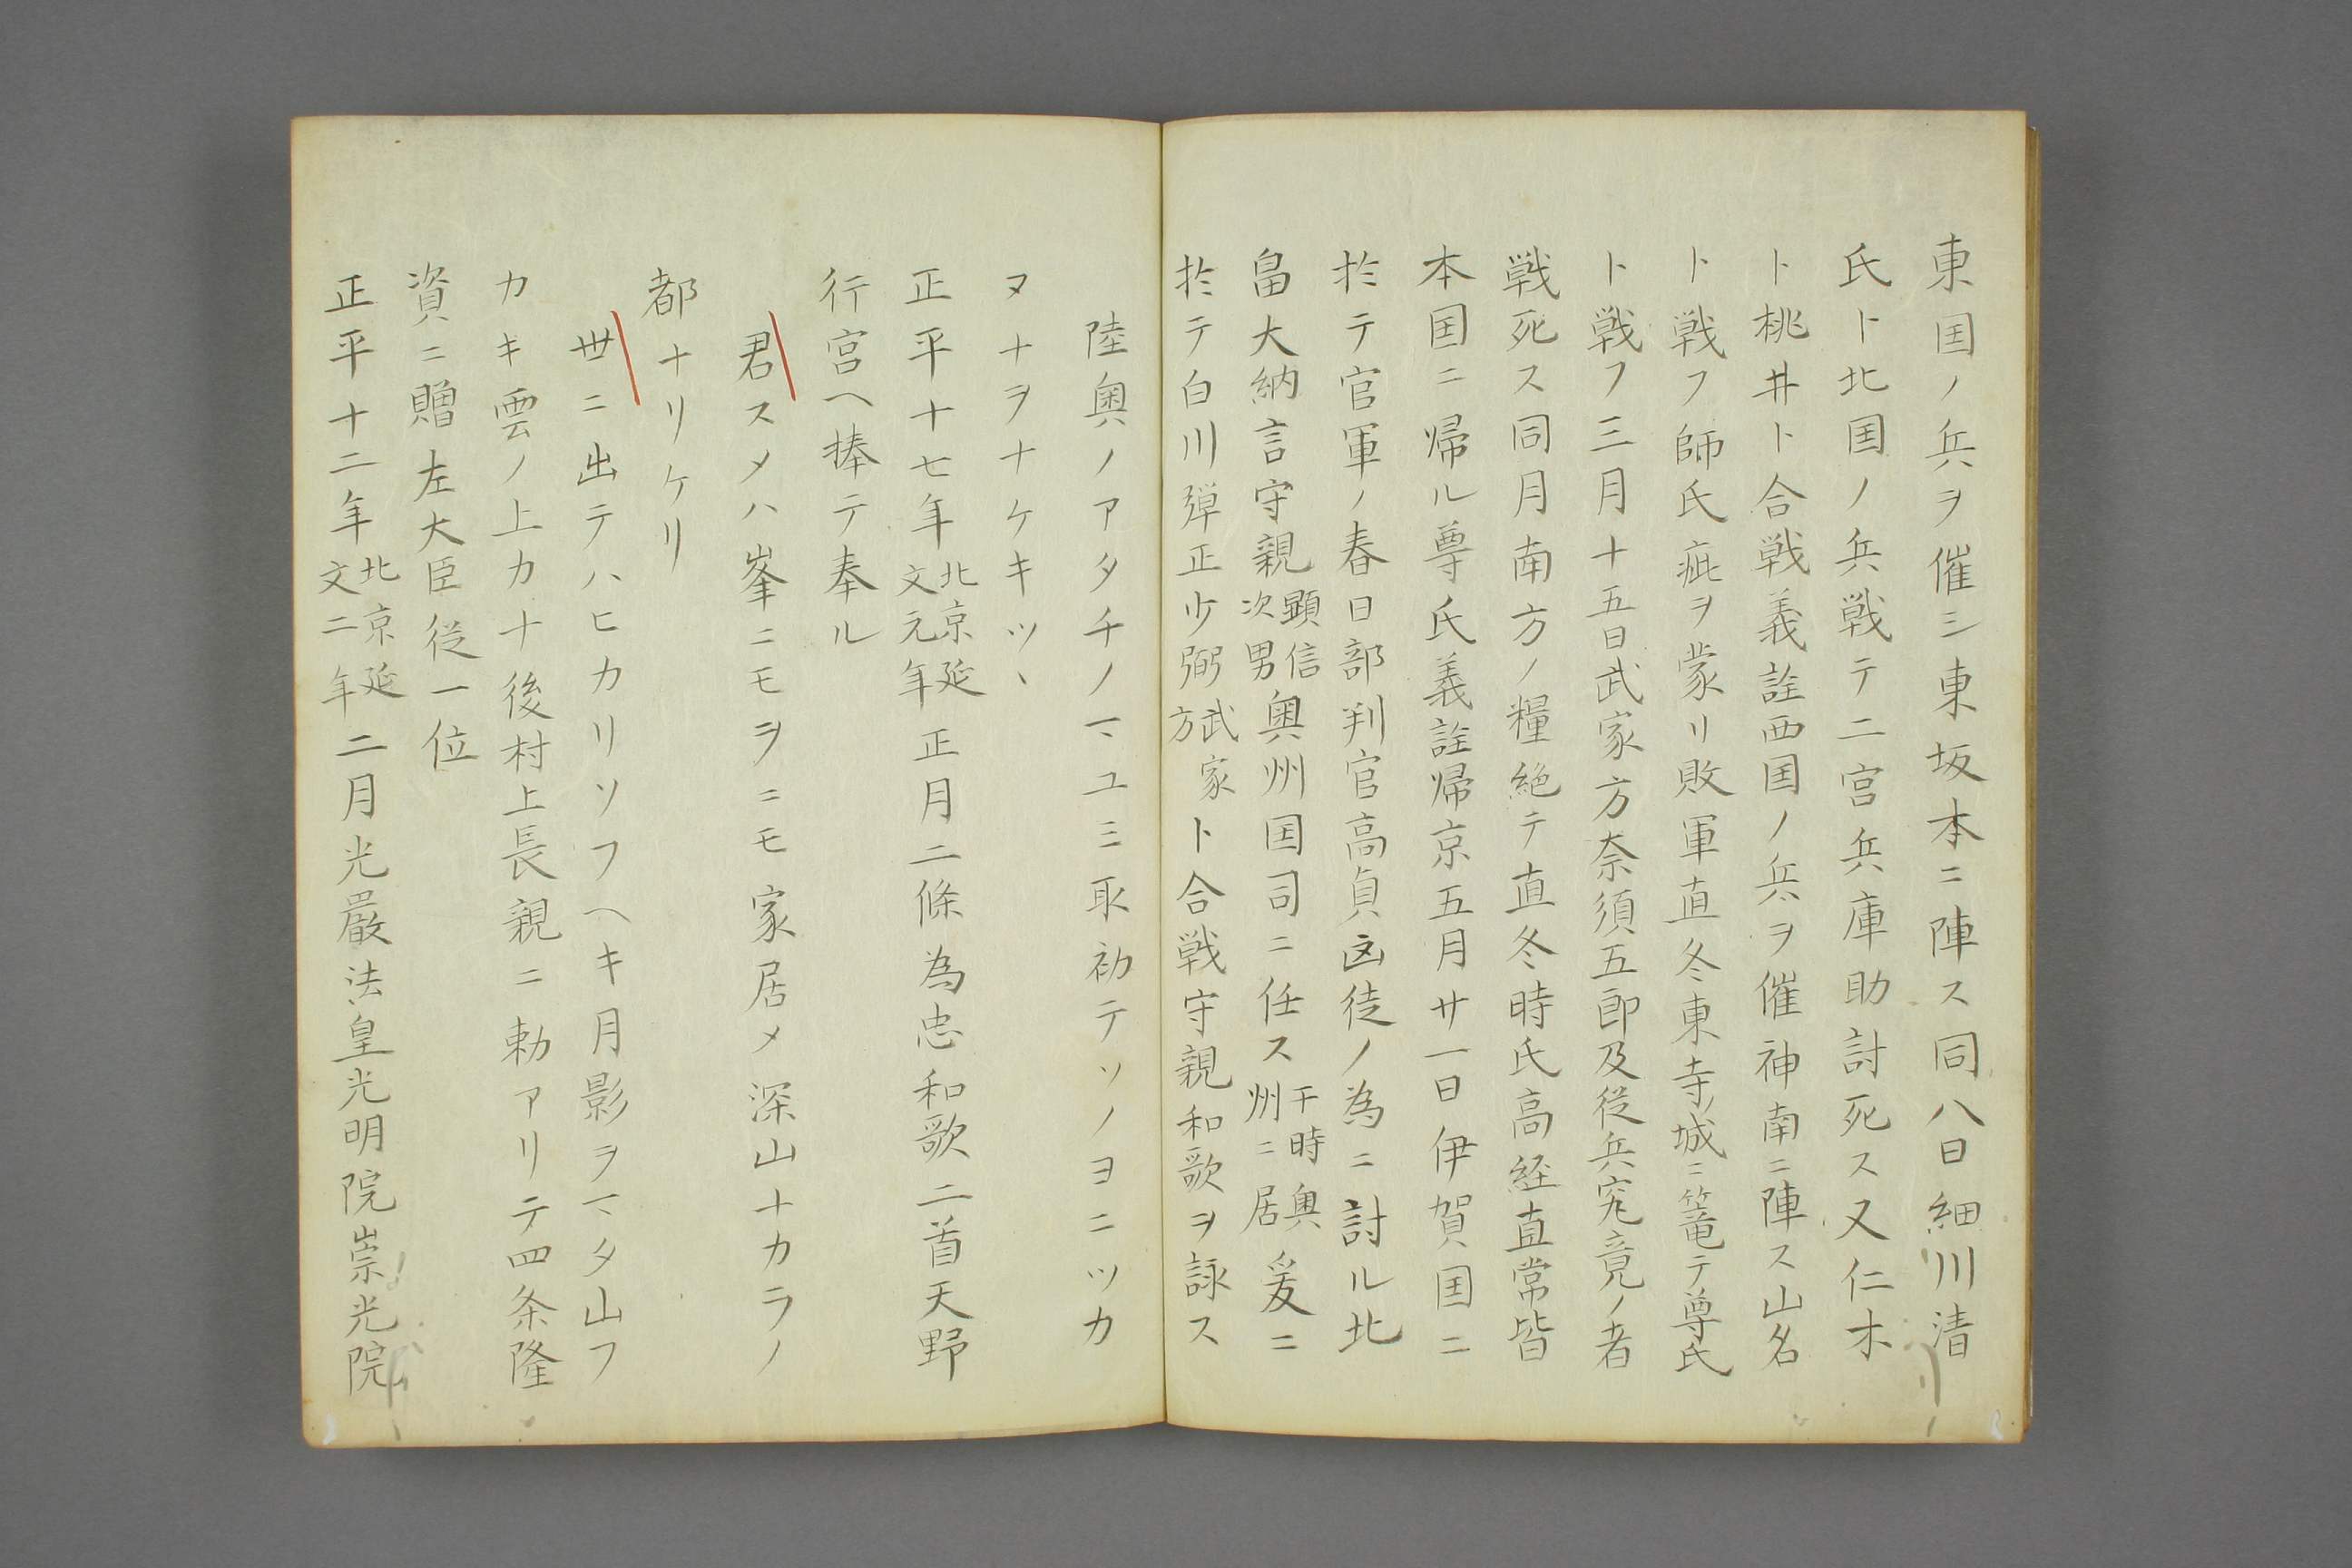 東国ノ兵ヲ催シ東坂本ニ陣ス同八日細川清
氏ト北国ノ兵戦テ二宮兵庫助討死ス又仁木
ト桃井ト合戦義詮西国ノ兵ヲ催神南ニ陣ス山名
ト戦フ師氏疵ヲ蒙リ敗軍直冬東寺城ニ篭テ尊氏
ト戦フ三月十五日武家方奈須五郎及従兵究竟ノ者
戦死ス同月南方ノ糧絶テ直冬時氏高経直常皆
本国ニ帰ル尊氏義詮帰京五月廿一日伊賀国ニ
於テ官軍ノ春日部判官高貞凶徒ノ為ニ討ル北
畠大納言守親顕信次男奥州国司ニ任ス于時奥州ニ居爰ニ
於テ白川弾正少弼武家方ト合戦守親和歌ヲ詠ス
陸奥ノアタチノマユミ取初テソノヨニツカ
ヌナヲナケキツヽ
正平十七年北京延文元年正月二條為忠和歌二首天野
行宮ヘ捧テ奉ル
君スメハ峯ニモヲニモ家居メ深山ナカラノ
都ナリケリ
世ニ出テハヒカリソフヘキ月影ヲマタ山フ
カキ雲ノ上カナ後村上長親ニ勅アリテ四条隆
資ニ贈左大臣従一位
正平十二年北京延文二年二月光厳法皇光明院崇光院